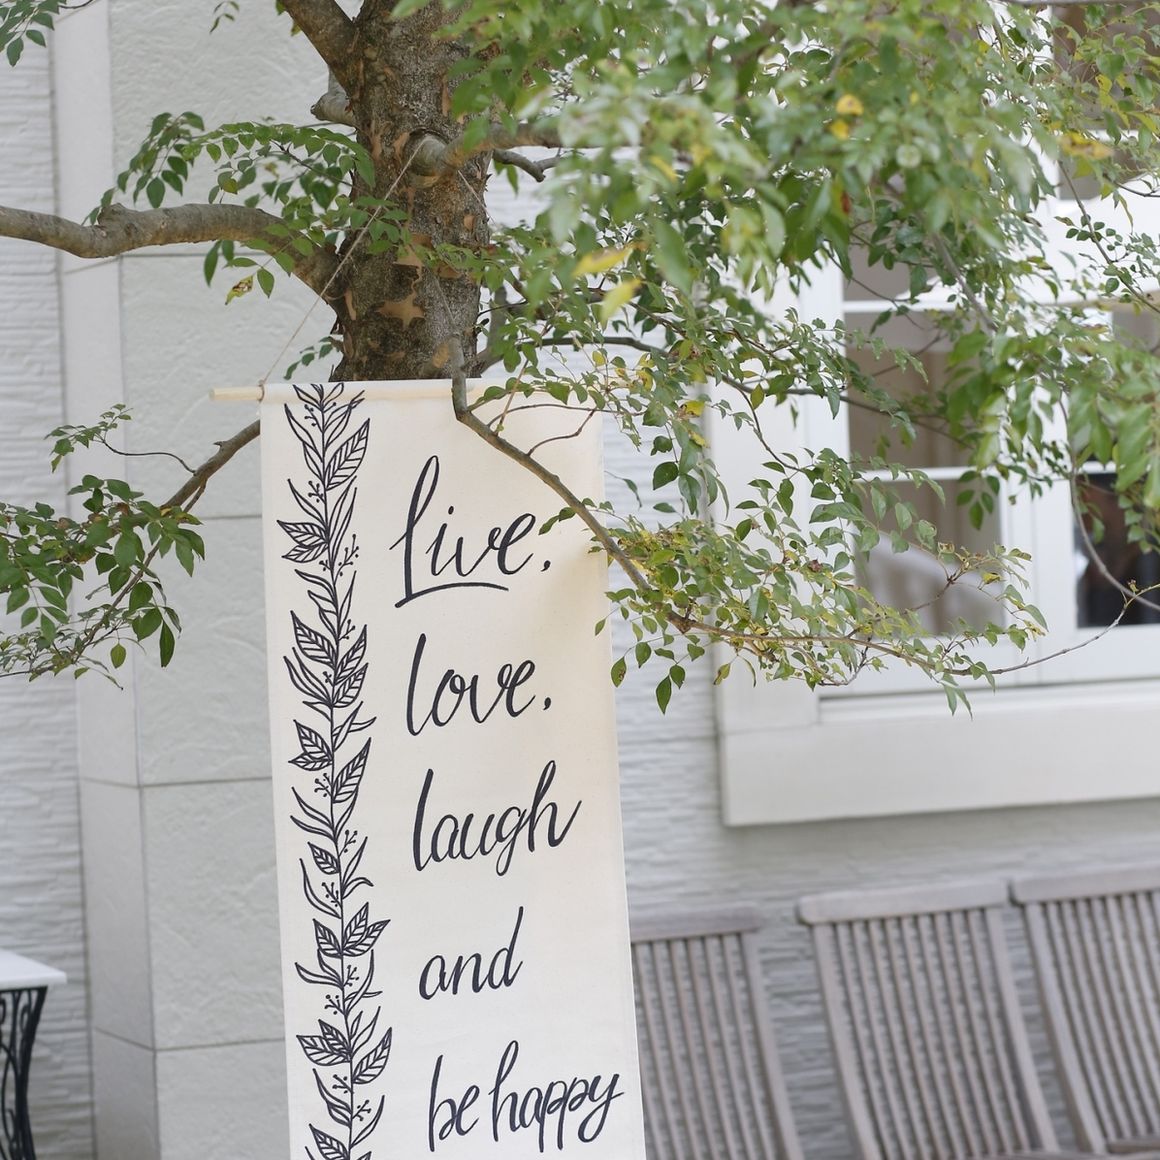 Live.
love.
laugh
and
be happy